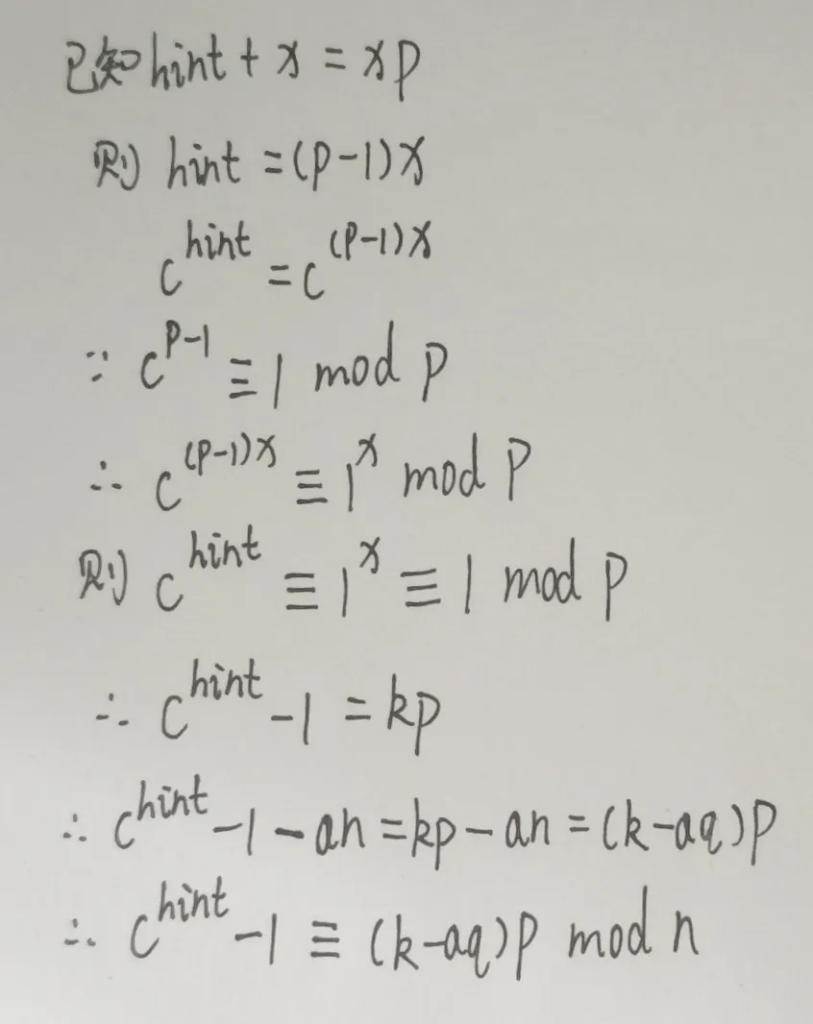 已知 hint + x = xp
则 hint = (p-1)x
c^hint = c^(p-1)x
∵ c^p-1 ≡ 1 mod p
∴ c^(p-1)x ≡ 1^x mod p
则 c^hint ≡ 1^x ≡ 1 mod p
∴ c^hint - 1 = kp
∴ c^hint - 1 - an = kp - an = (k-aq)p
∴ c^hint - 1 ≡ (k-aq)p mod n